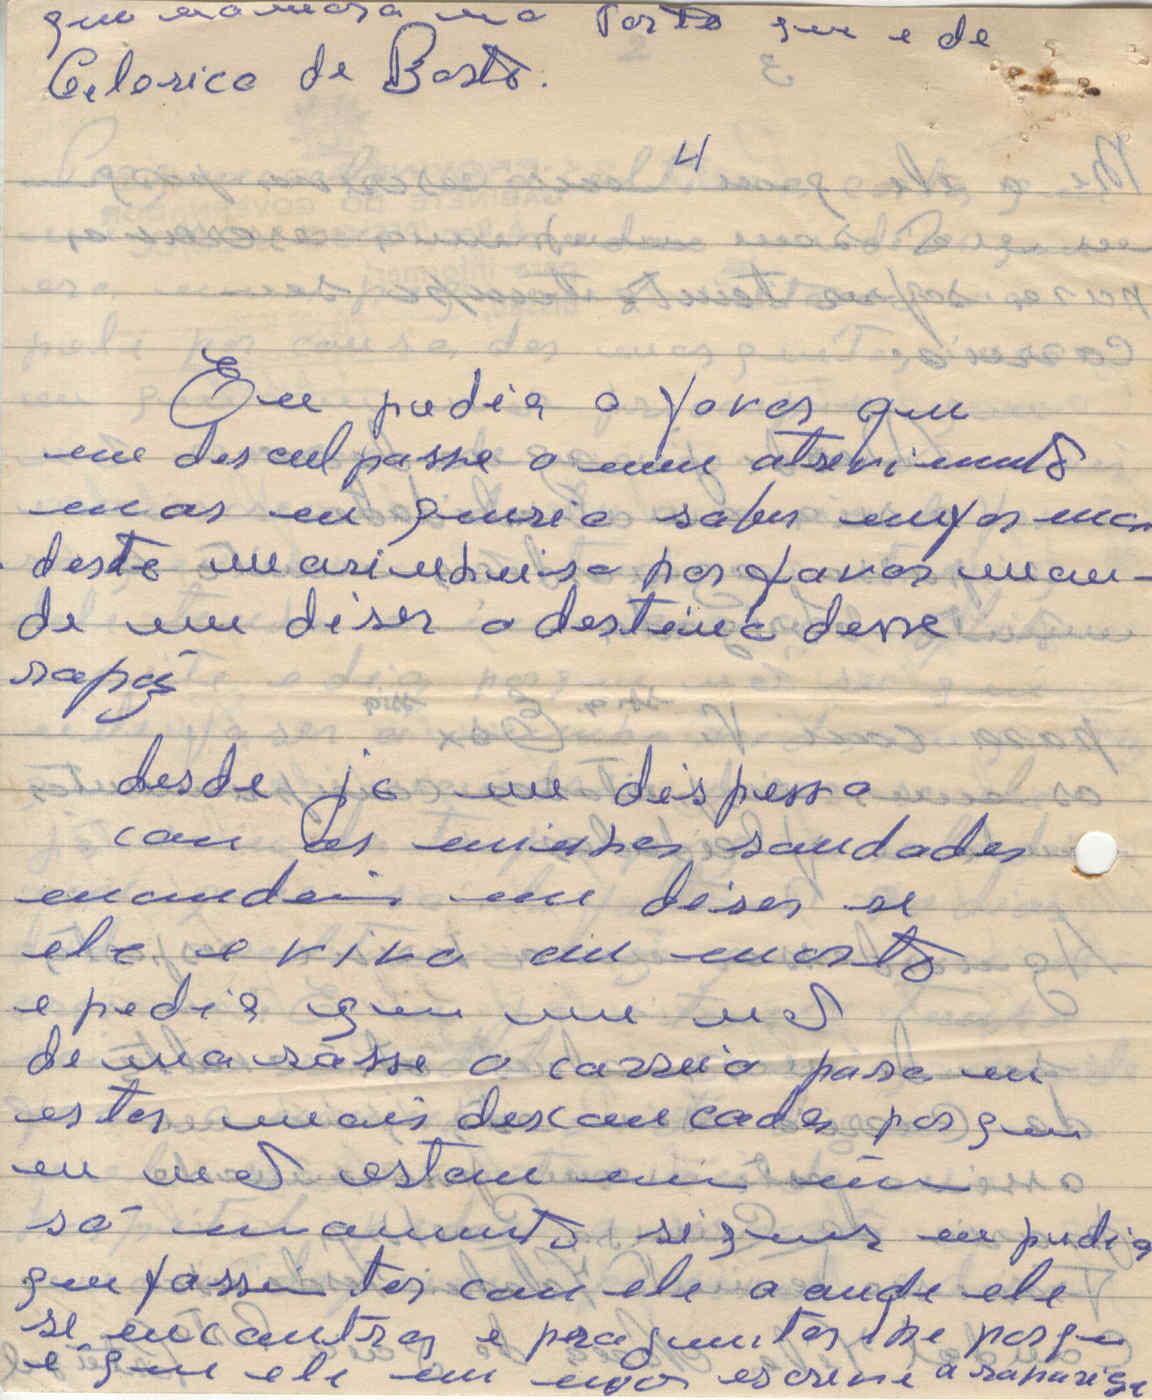 que namora no Porto que e de
Celorico de Basto.
4
Eu pedia o favor que
me desculpasse o meu atrevimento
mas eu queria saber emforma
deste marinheiro por favor man-
de me diser o destino desse
rapaz
desde ja me despesso
com as minhas saudades
mandai me diser se
ele e vivo ou morto
e pedia que me não
demorasse o correio para eu
estar mais descancada porque
eu não estou em mim
só momento siquer eu pedia
que fossem ter com ele a onde ele
se encontrar e preguntar lhe porque
e que ele em não escreve a rapariga